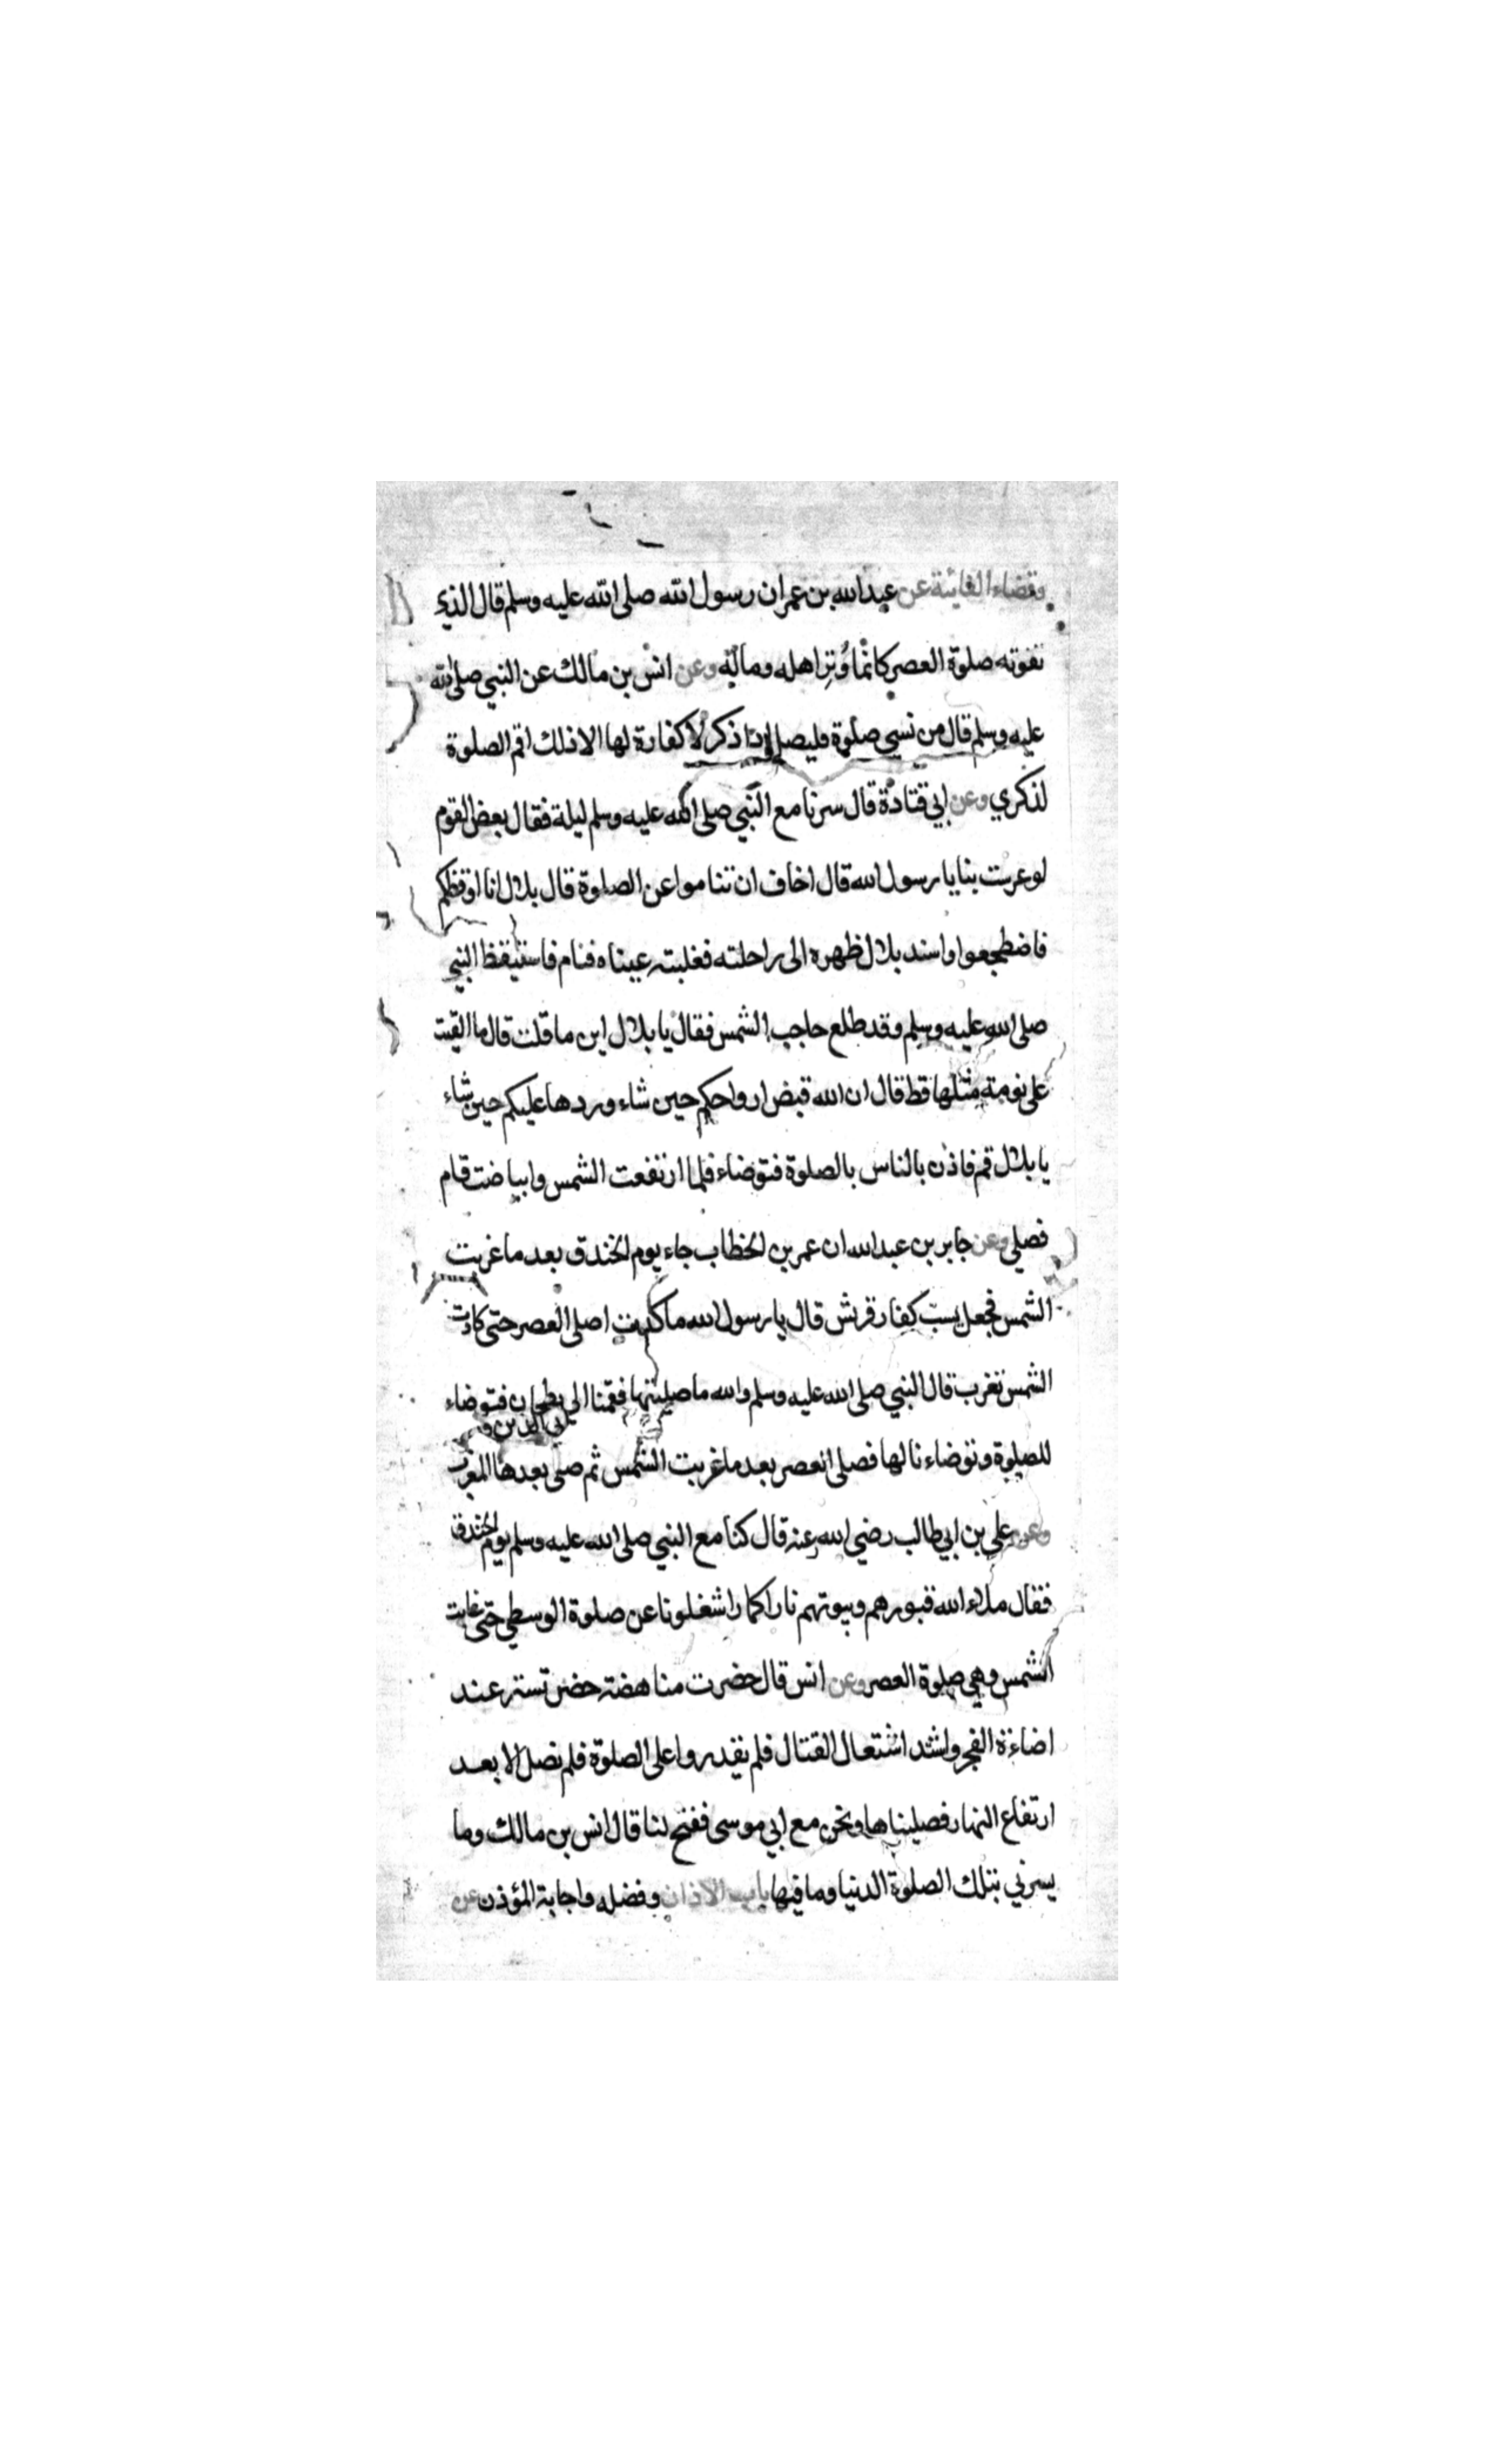 وقضاء الفائتة عن عبدالله بن عمر ان رسول الله صلى الله عليه وسلم قال الذي
تفوته صلوة العصر كانما وُتِر اهله وماله وعن انس بن مالك عن النبي صلى الله
عليه وسلم قال من نسي صلوة فليصل اذا ذكر لا كفارة لها الا ذلك اقم الصلوة
لذكري وعن ابي قتادة قال سرنا مع النبي صلى الله عليه وسلم ليلة فقال بعض القوم
لو عرست بنا يا رسول الله قال اخاف ان تناموا عن الصلوة قال بلال انا اوقظكم
فاضطجعوا واسند بلال ظهره الى راحلته فغلبته عيناه فنام فاستيقظ النبي
صلى الله عليه وسلم وقد طلع حاجب الشمس فقال يا بلال اين ما قلت قال ما القيت
على نومة مثلها قط قال ان الله قبض ارواحكم حين شاء وردها عليكم حين شاء
يا بلال قم فاذن بالناس بالصلوة فتوضاء فلما ارتفعت الشمس وابياضت قام
فصلى وعن جابر بن عبدالله ان عمر بن الخطاب جاء يوم الخندق بعد ما غربت
الشمس فجعل يسب كفار قريش قال يا رسول الله ما كدت اصلي العصر حتى كادت
الشمس تغرب قال النبي صلى الله عليه وسلم والله ما صليتها فقمنا الى بطحان فتوضاء
للصلوة وتوضاء نا لها فصلى العصر بعد ما غربت الشمس ثم صلى بعدها المغرب
وعن علي بن ابي طالب رضي الله عنه قال كنا مع النبي صلى الله عليه وسلم يوم الخندق
فقال ملاء الله قبورهم وبيوتهم نارا كما اشغلونا عن صلوة الوسطى حتى غابت
الشمس وهي صلوة العصر وعن انس قال حضرت مناهضة حضن تستر عند
اضاءة الفجر واشتد اشتعال القتال فلم يقدروا على الصلوة فلم نصل الا بعد
ارتفاع النهار فصليناها ونحن مع ابي موسى ففتح لنا قال انس بن مالك وما
يسرني بتلك الصلوة الدنيا وما فيها باب الاذان وفضله واجابة المؤذن عن